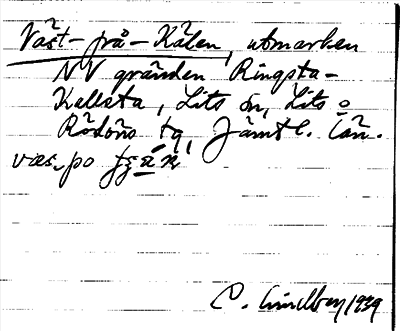 Väst-på-Kälen, utmarken
NV gränden Ringsta-
Kallsta, Lits sn, Lits o
Rödöns tg, Jämtl. län.
väs, po
C. Lindberg 1939